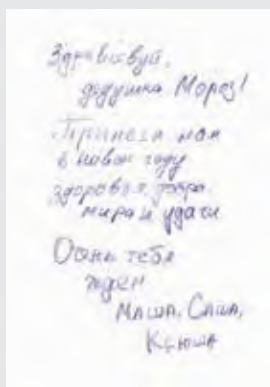 Здравствуй,
дедушка Мороз!
Принеси нам
в новом году
здоровья, добра,
мира и удачи
Очень тебя
ждем
Маша, Саша,
Ксюша